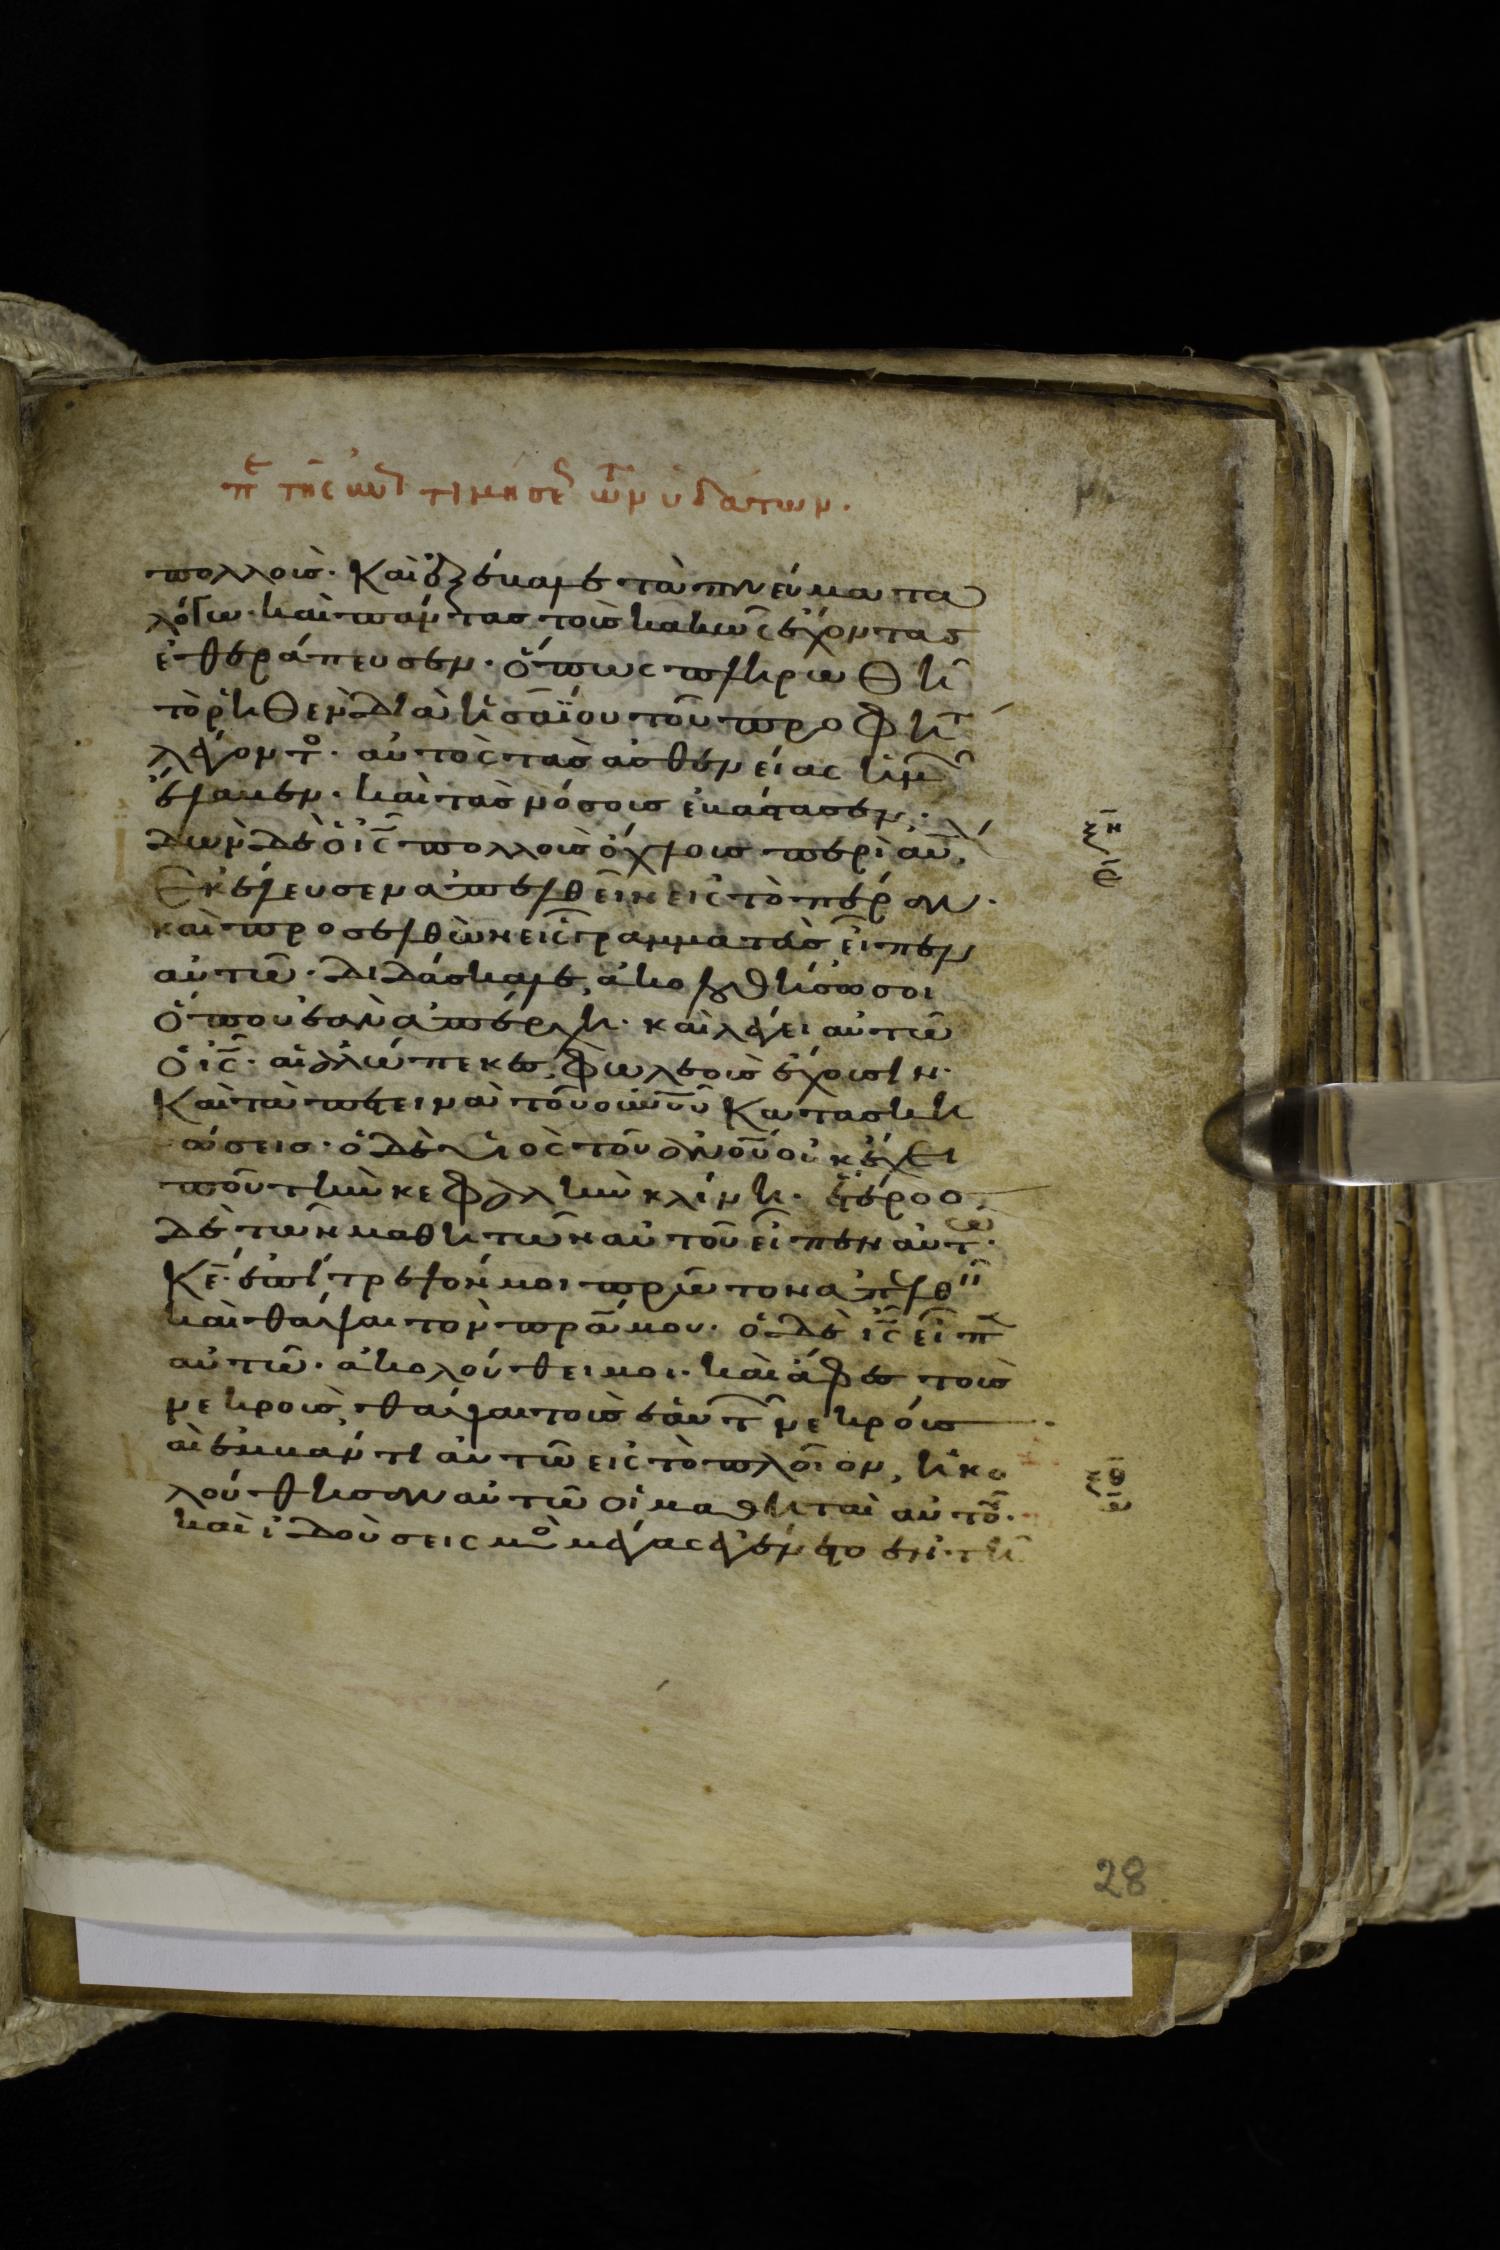 πε τῆς ἐπιτιμήσε τῶν ὑδάτων.
πολλοὺς. Καὶ ἐξέβαλε τὰ πνεύματα
λόγω. καὶ πάντας τοὺς κακῶς ἔχοντας
ἐθεράπευσεν. ὅπως πληρωθῆ
τὸ ῥηθὲν διὰ ἡσαΐου τοῦ προφητ
λέγοντο. αὐτὸς τὰς ἀσθενείας ἡμ
ἔλαβεν. καὶ τὰς νόσους ἐβάστασεν.
δὼν δὲ ὁ ις πολλοὺς ὄχλους περὶ αὐ
Ἐκέλευσεν ἀπελθεῖν εἰς τὸ πέραν.
καὶ προσελθὼν εἷς γραμματεὺς εἶπεν
αὐτῶ. διδάσκαλε, ἀκολουθήσω σοι
ὅπου ἐὰν ἀπέρχη. καὶ λέγει αὐτῶ
ὁ ις. αἱ ἀλώπεκες, φωλεοὺς ἔχουσιν.
Καὶ τὰ πετεινὰ τοῦ οὐνοῦ κατασκη
ώσεις. ὁ δὲ υἱὸς τοῦ ἀνοῦ οὐκ ἔχει
ποῦ τὴν κεφαλὴν κλίνη. ἕτερος
δὲ τῶν μαθητῶν αὐτοῦ εἶπεν αὐτῶ.
Κε. ἐπίτρεψόν μοι πρῶτον ἀπελθεῖ
καὶ θάψαι τὸν πρα μου. ὁ δὲ ις εἶπε
αὐτῶ. ἀκολούθει μοι. καὶ ἄφες τοὺς
νεκροὺς, θάψαι τοὺς ἑαυτ νεκρούς
αὶ ἐμβάντι αὐτῶ εἰς τὸ πλοῖον, ἠκο
λούθησαν αὐτῶ οἱ μαθηταὶ αὐτοῦ.
καὶ ἰδοὺ σεισμὸ μέγας ἐγένετο ἐν τῆ
ξη
ε
ξθ
28